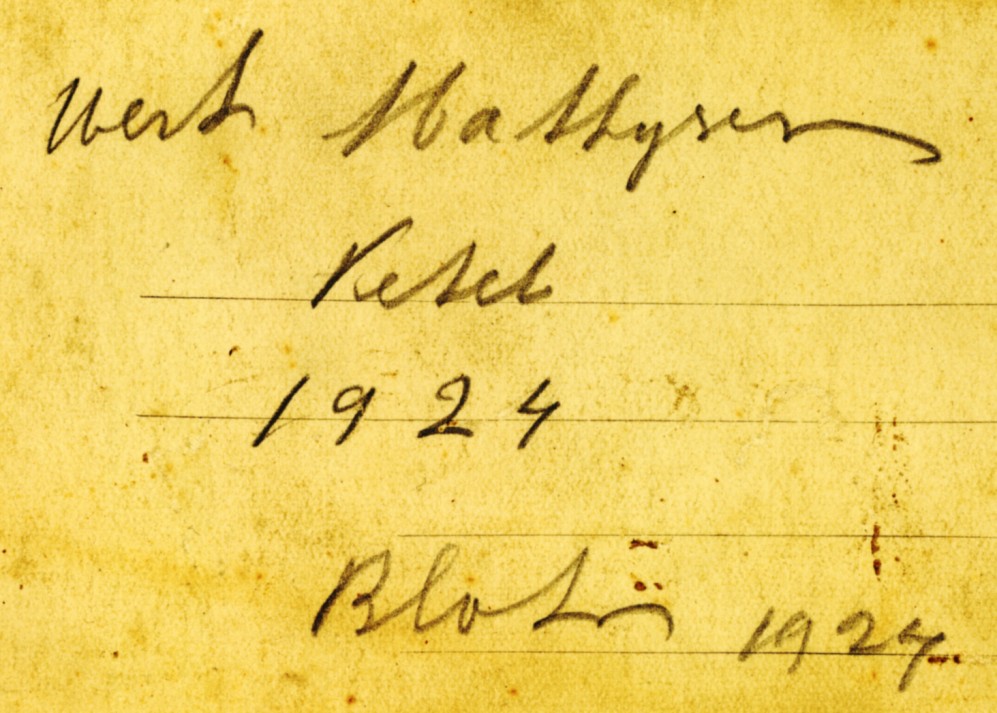 werk Mathysen
Ketel
1924
Blok 1924